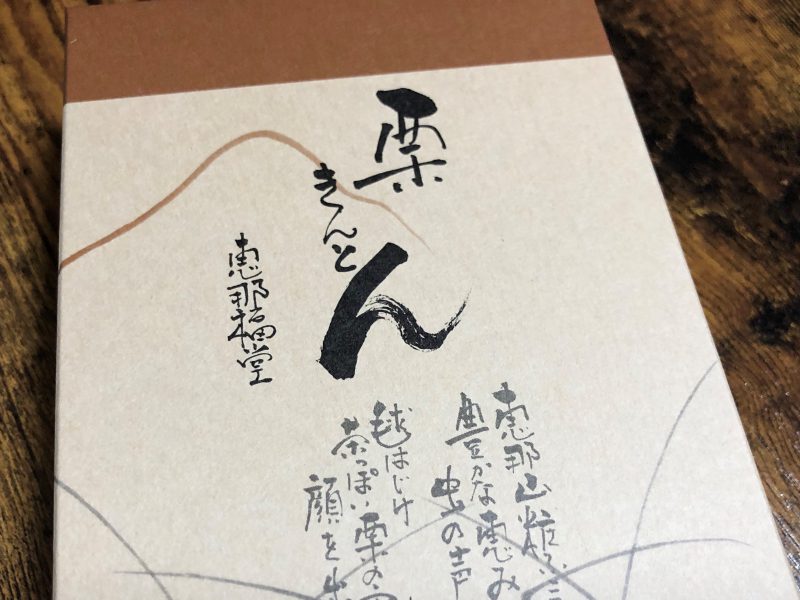 栗
きんとん
恵那福堂
恵那山粧い
豊かな恵み
虫の声
毬はじけ
茶っぽい栗の
顔を出